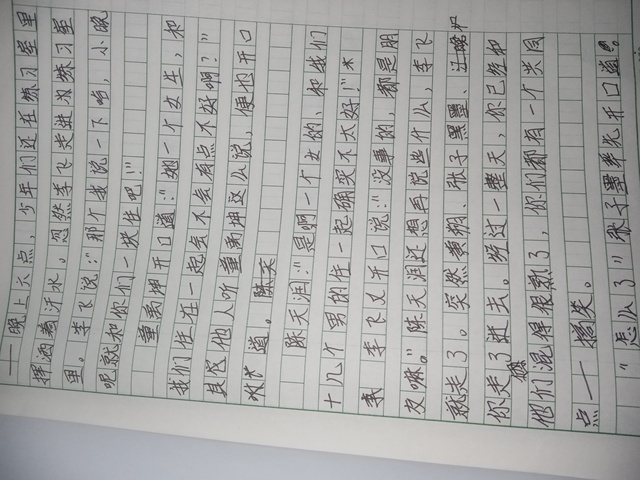 一晚上六点，少年们还在练习室里
挥洒着汗水。忽然李飞走进为练习室
里。李飞说:“那个我说一下哈，小晚
呢就和你们一块住吧！”
童禹坤开口道:“她一个女生，和
我们住在一起是不会有点不好啊？”
其他人听童禹坤这么说，便也开口
道。陈天
陈天润:“是啊一个女的、和我们
十几个男的住一起确实不太好！”
李飞又开口说:“没事的，都是朋
友嘛。”陈天润还想再说些什么，李飞
就走了。突然黄朔、张子墨墨、
你走了进去。经过一整天，你已经和
他们混得很熟了，你们都有一个共同
点——搞笑。
“怎么了”张子墨率先开口道。